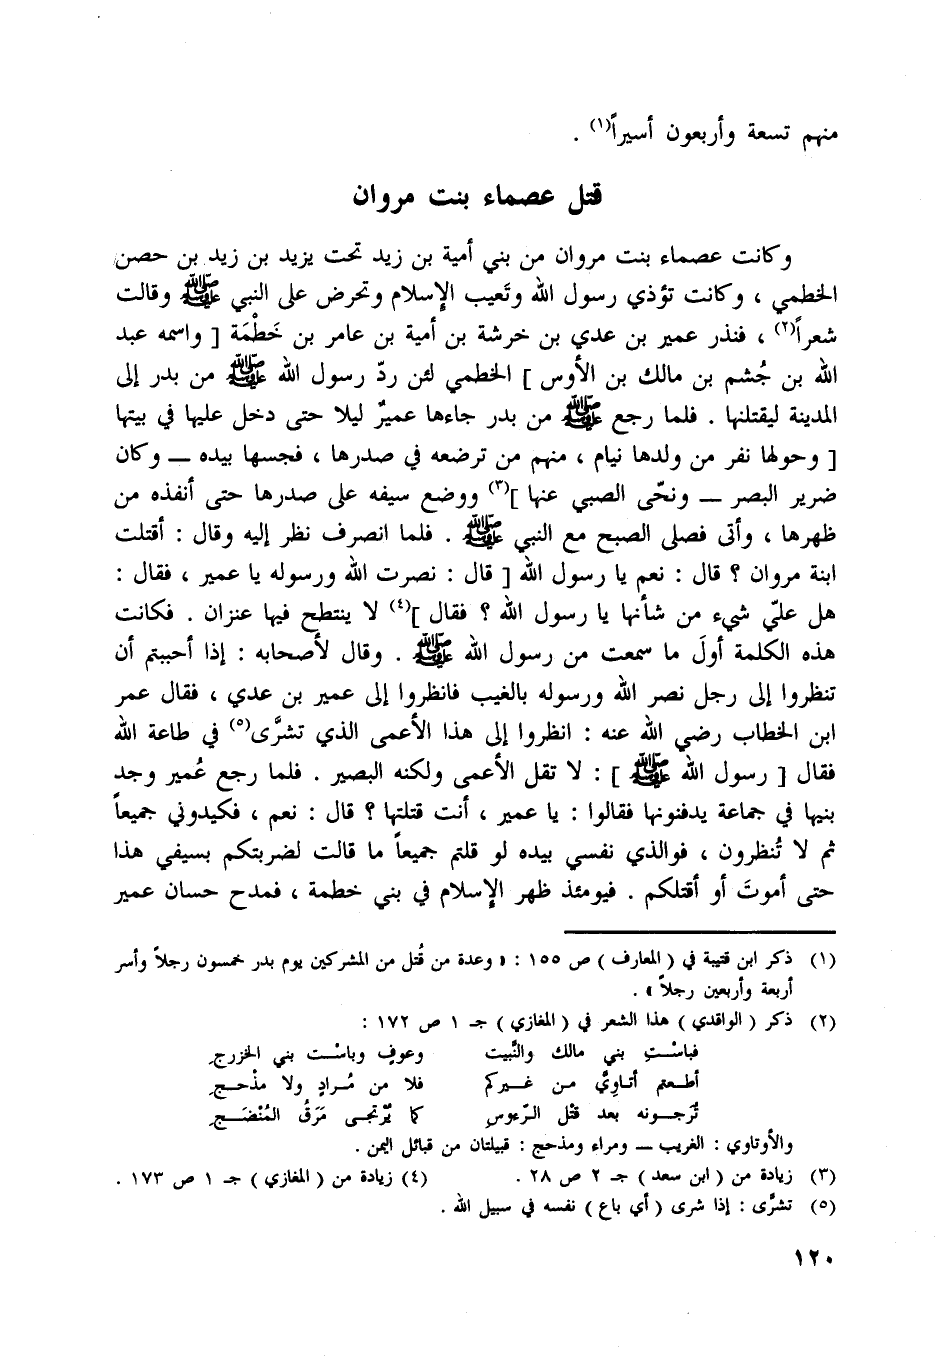 منهم تسعة وأربعون أسيراً(١) .
قتل عصماء بنت مروان
وكانت عصماء بنت مروان من بني أمية بن زيد تحت يزيد بن زيد بن حصن
الخطمي ، وكانت تؤذي رسول الله وتَعيب الإسلام وتحرض على النبي ﷺ وقالت
شعراً(٢) ، فنذر عمير بن عدي بن خرشة بن أمية بن عامر بن خَطْمَة [ واسمه عبد
الله بن جُشم بن مالك بن الأوس ] الخطمي لئن ردّ رسول الله ﷺ من بدر إلى
المدينة ليقتلنها . فلما رجع ﷺ من بدر جاءها عميرٌ ليلا حتى دخل عليها في بيتها
[ وحولها نفر من ولدها نيام ، منهم من ترضعه في صدرها ، فجسها بيده — وكان
ضرير البصر — ونحّى الصبي عنها ](٣) ووضع سيفه على صدرها حتى أنفذه من
ظهرها ، وأتى فصلى الصبح مع النبي ﷺ . فلما انصرف نظر إليه وقال : أقتلت
ابنة مروان ؟ قال : نعم يا رسول الله [ قال : نصرت الله ورسوله يا عمير ، فقال :
هل عليّ شيء من شأنها يا رسول الله ؟ فقال ](٤) لا ينتطح فيها عنزان . فكانت
هذه الكلمة أولَ ما سمعت من رسول الله ﷺ . وقال لأصحابه : إذا أحببتم أن
تنظروا إلى رجل نصر الله ورسوله بالغيب فانظروا إلى عمير بن عدي ، فقال عمر
ابن الخطاب رضي الله عنه : انظروا إلى هذا الأعمى الذي تشرَّى(٥) في طاعة الله
فقال [ رسول الله ﷺ ] : لا تقل الأعمى ولكنه البصير . فلما رجع عُمير وجد
بنيها في جماعة يدفنونها فقالوا : يا عمير ، أنت قتلتها ؟ قال : نعم ، فكيدوني جميعاً
ثم لا تُنظرون ، فوالذي نفسي بيده لو قلتم جميعاً ما قالت لضربتكم بسيفي هذا
حتى أموتَ أو أقتلكم . فيومئذ ظهر الإسلام في بني خطمة ، فمدح حسان عمير
(١) ذكر ابن قتيبة في ( المعارف ) ص ١٥٥ : « وعدة من قُتل من المشركين يوم بدر خمسون رجلاً وأسر
أربعة وأربعين رجلاً » .
(٢) ذكر ( الواقدي ) هذا الشعر في ( المغازي ) جـ ١ ص ١٧٢ :
فباسْتِ بني مالك والنَّبيت وعوفٍ وباسْت بني الخزرجِ
أطعتم أتاوِيَّ من غيركم فلا من مُرادٍ ولا مذْحجِ
تُرَجونه بعد قتْل الرّءوسِ كما يُرْتجى مَرَقُ المُنْضَجِ
والأوتاوي : الغريب — ومراء ومذحج : قبيلتان من قبائل اليمن .
(٣) زيادة من ( ابن سعد ) جـ ٢ ص ٢٨ . (٤) زيادة من ( المغازي ) جـ ١ ص ١٧٣ .
(٥) تشرَّى : إذا شرى ( أي باع ) نفسه في سبيل الله .
١٢٠